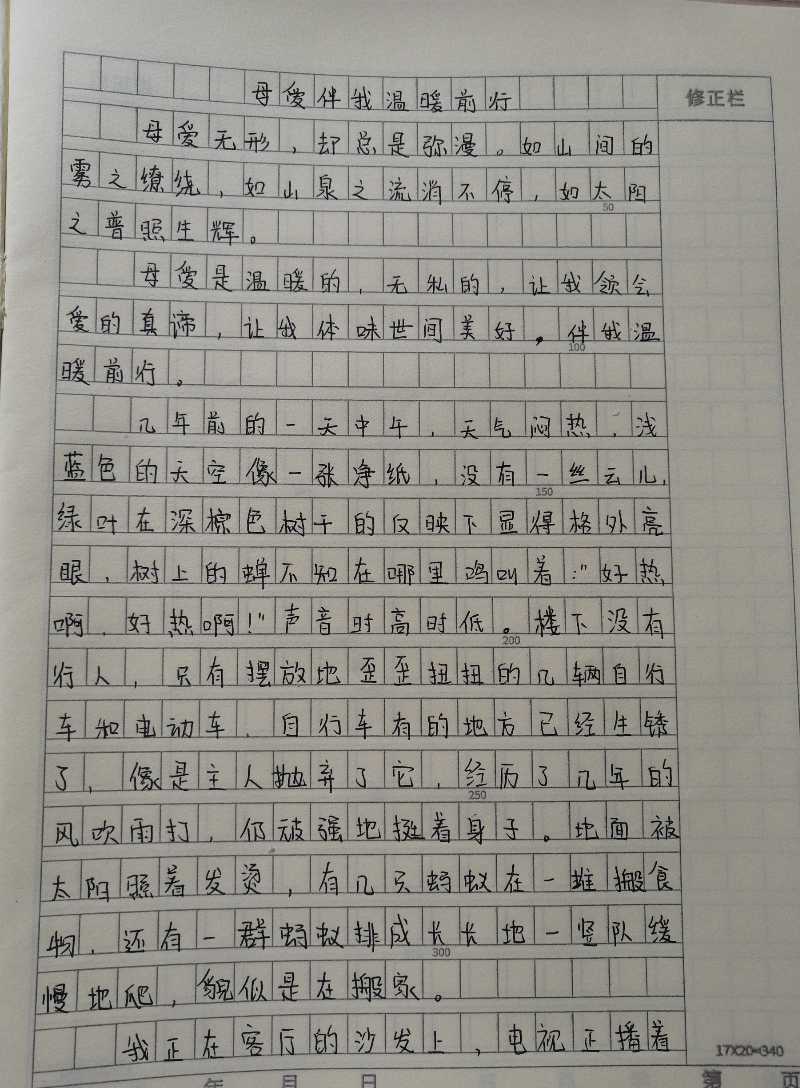 母爱伴我温暖前行
修正栏
母爱无形，却总是弥漫。如山间的
雾之缭绕，如山泉之流淌不停，如太阳
50
之普照生辉。
母爱是温暖的，无私的，让我领会
爱的真谛，让我体味世间美好，伴我温
100
暖前行。
几年前的一天中午，天气闷热，浅
蓝色的天空像一张净纸，没有一丝云儿，
150
绿叶在深棕色树干的反映下显得格外亮
眼，树上的蝉不知在哪里鸣叫着："好热
啊，好热啊！"声音时高时低。楼下没有
200
行人，只有摆放地歪歪扭扭的几辆自行
车和电动车，自行车有的地方已经生锈
了，像是主人抛弃了它，经历了几年的
250
风吹雨打，仍顽强地挺着身子。地面被
太阳照着发烫，有几只蚂蚁在一堆搬食
物，还有一群蚂蚁排成长长地一竖队缓
300
慢地爬，貌似是在搬家。
我正在客厅的沙发上，电视正播着
17X20=340
年 月 日 第 页